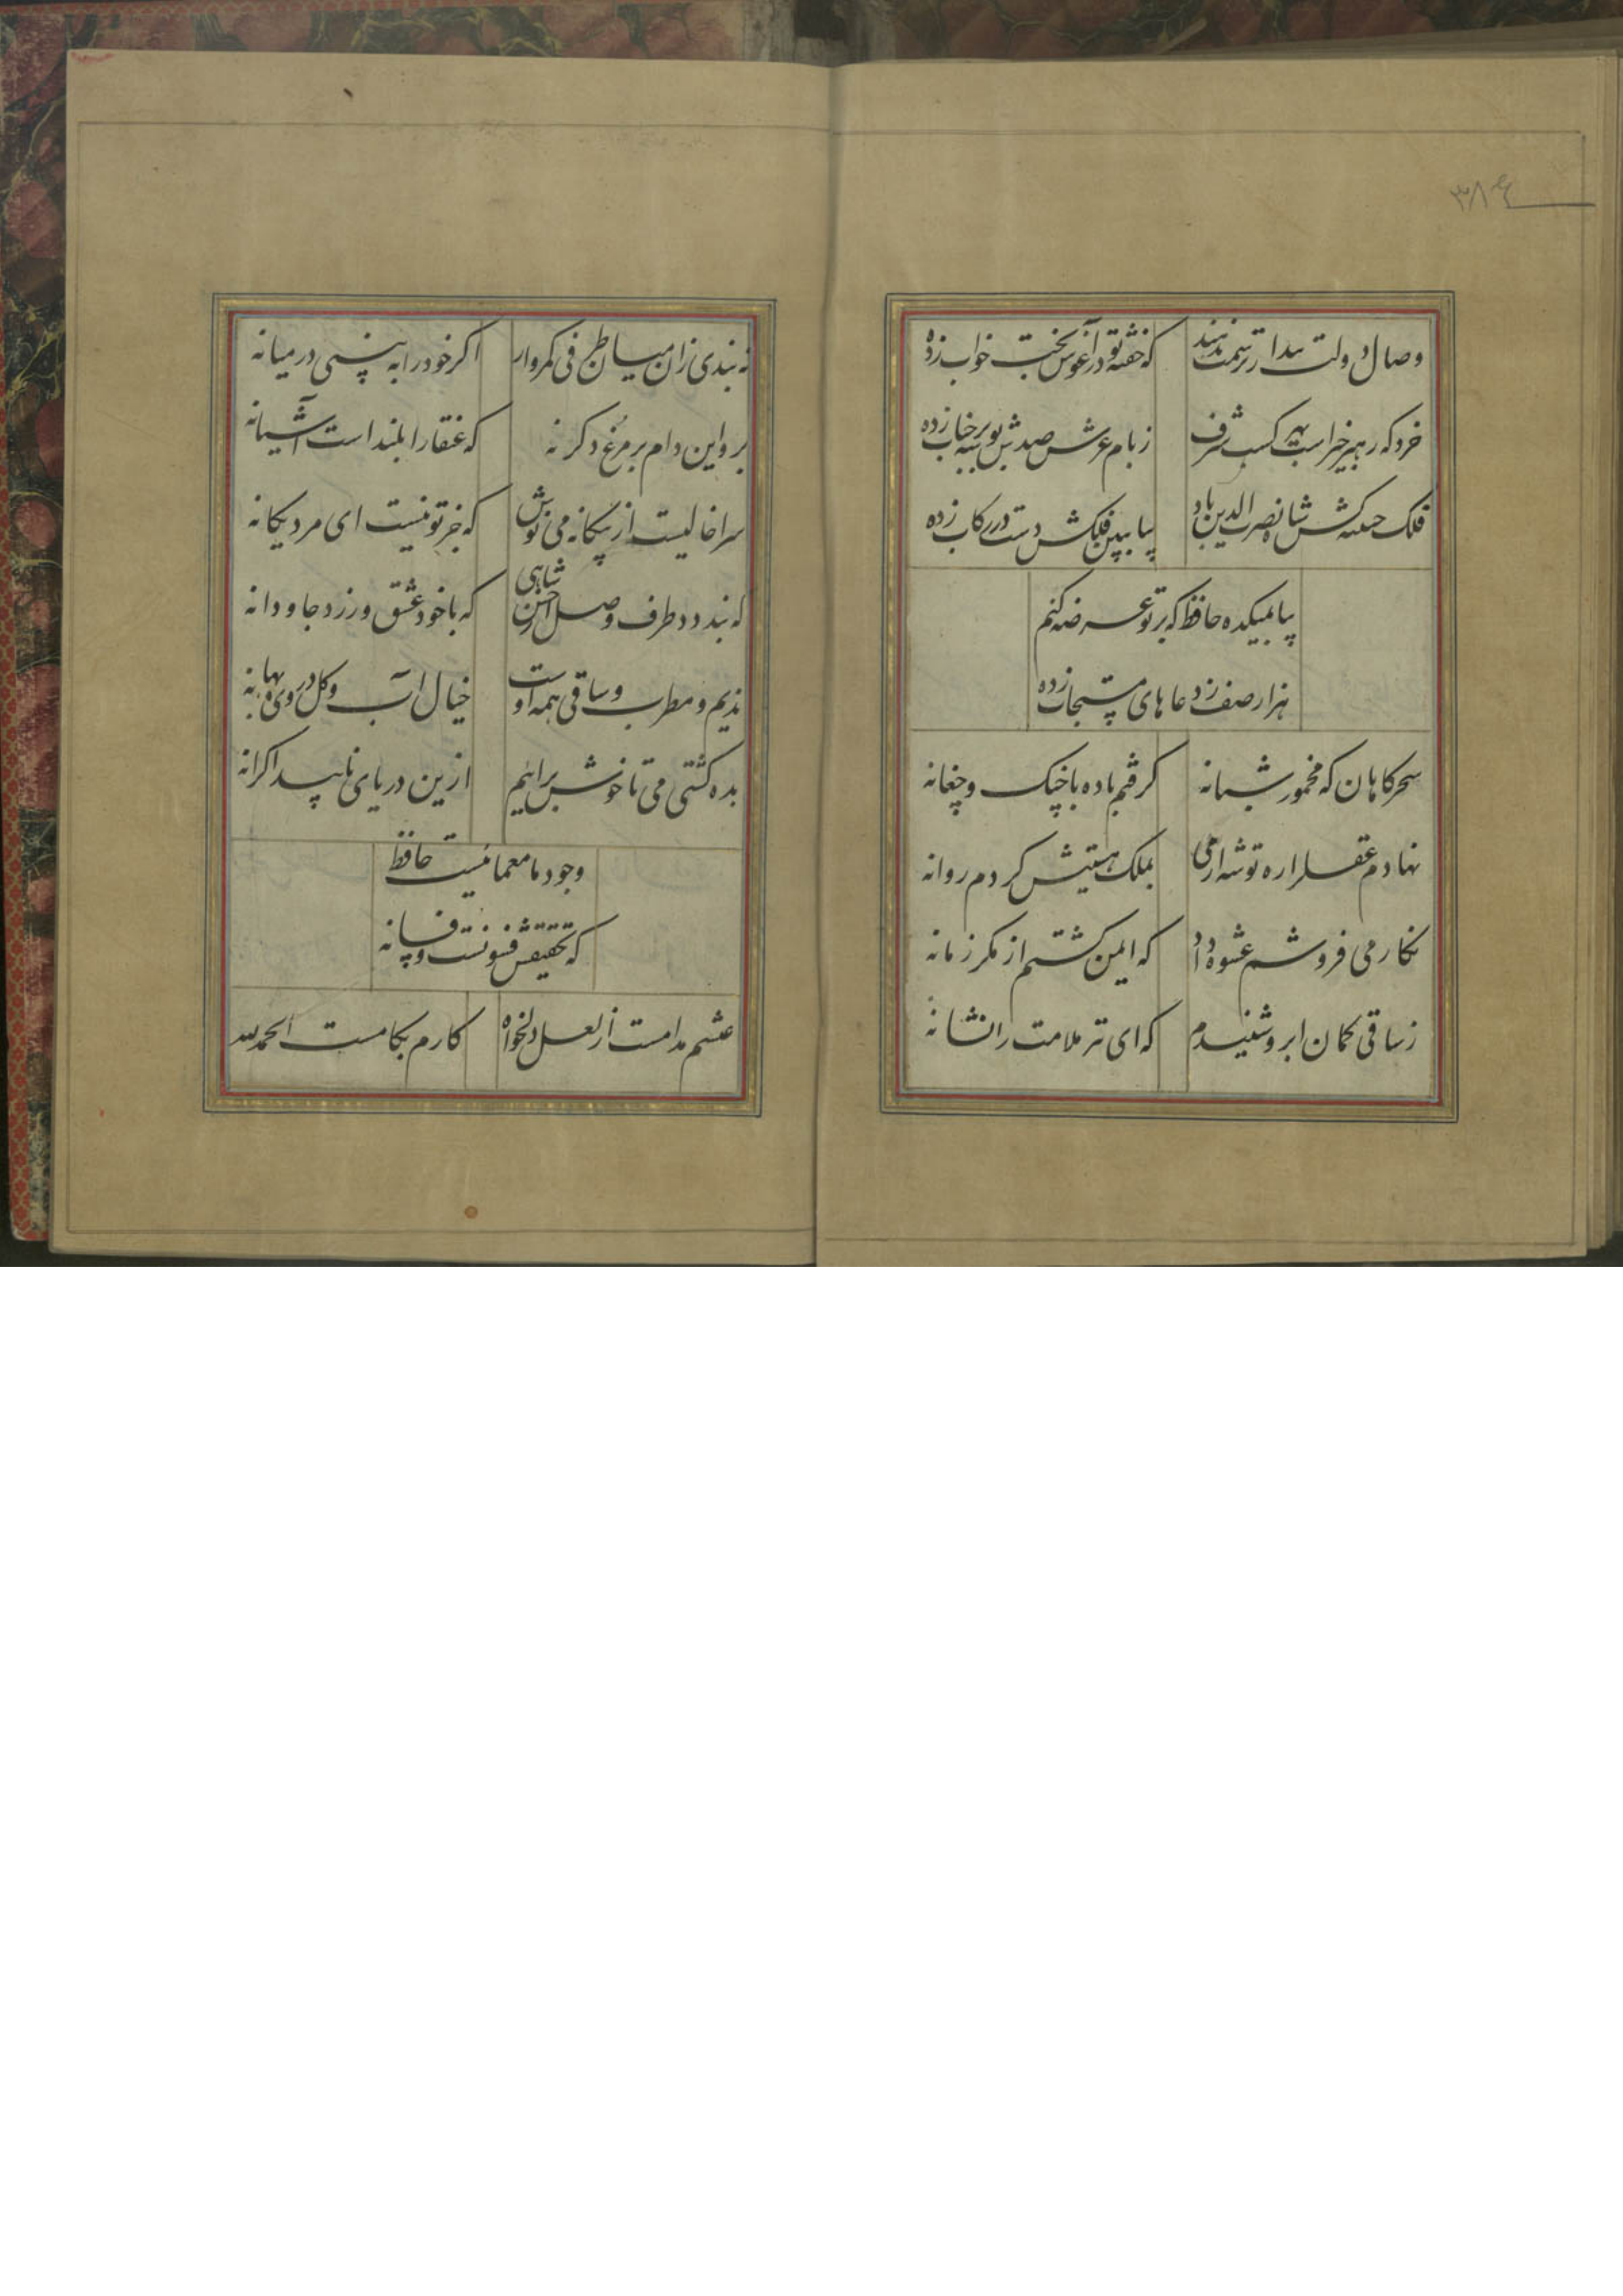 ۳۸۴
وصال دولت بیدار ترسمت ندهند
که خفتهٔ تو در آغوش بخت خواب زده
خرد که رهبر خیر است بهر کسب شرف
ز بام عرش صدش بوسه بر جناب زده
فلک جنیبه کش شاه نصرت الدین باد
بیا ببین فلکش دست در رکاب زده
بیا بمیکده حافظ که بر تو عرضه کنم
هزار صف ز دعاهای مستجاب زده
سحرکاهان که مخمور شبانه
کرفتم باده با چنک و چغانه
نهادم عقل را ره توشه از می
بملک هستیش کردم روانه
نکار می فروشم عشوهٔ داد
که ایمن کشتم از مکر زمانه
ز ساقی کمان ابرو شنیدم
که ای تیر ملامت را نشانه
نه بندی زان میان طرفی کمروار
اکر خود را به بینی در میانه
برو این دام بر مرغ دکر نه
که عنقا را بلند است آشیانه
سرا خالیست از بیکانه می نوش
که جز تو نیست ای مرد یکانه
که بندد طرف وصل از حسن شاهی
که با خود عشق ورزد جاودانه
ندیم و مطرب و ساقی همه اوست
خیال آب و کل در ره بهانه
بده کشتی می تا خوش برانیم
ازین دریای ناپیدا کرانه
وجود ما معمائیست حافظ
که تحقیقش فسونست و فسانه
عیشم مدامست از لعل دلخواه
کارم بکامست الحمدلله